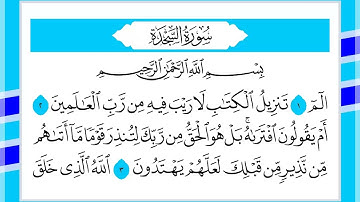 سُورَةُ السَّجْدَةِ
بِسْمِ اللَّهِ الرَّحْمَٰنِ الرَّحِيمِ
الٓمٓ ١ تَنزِيلُ الْكِتَابِ لَا رَيْبَ فِيهِ مِن رَّبِّ الْعَالَمِينَ ٢
أَمْ يَقُولُونَ افْتَرَاهُ ۚ بَلْ هُوَ الْحَقُّ مِن رَّبِّكَ لِتُنذِرَ قَوْمًا مَّا أَتَاهُم
مِّن نَّذِيرٍ مِّن قَبْلِكَ لَعَلَّهُمْ يَهْتَدُونَ ٣ اللَّهُ الَّذِي خَلَقَ